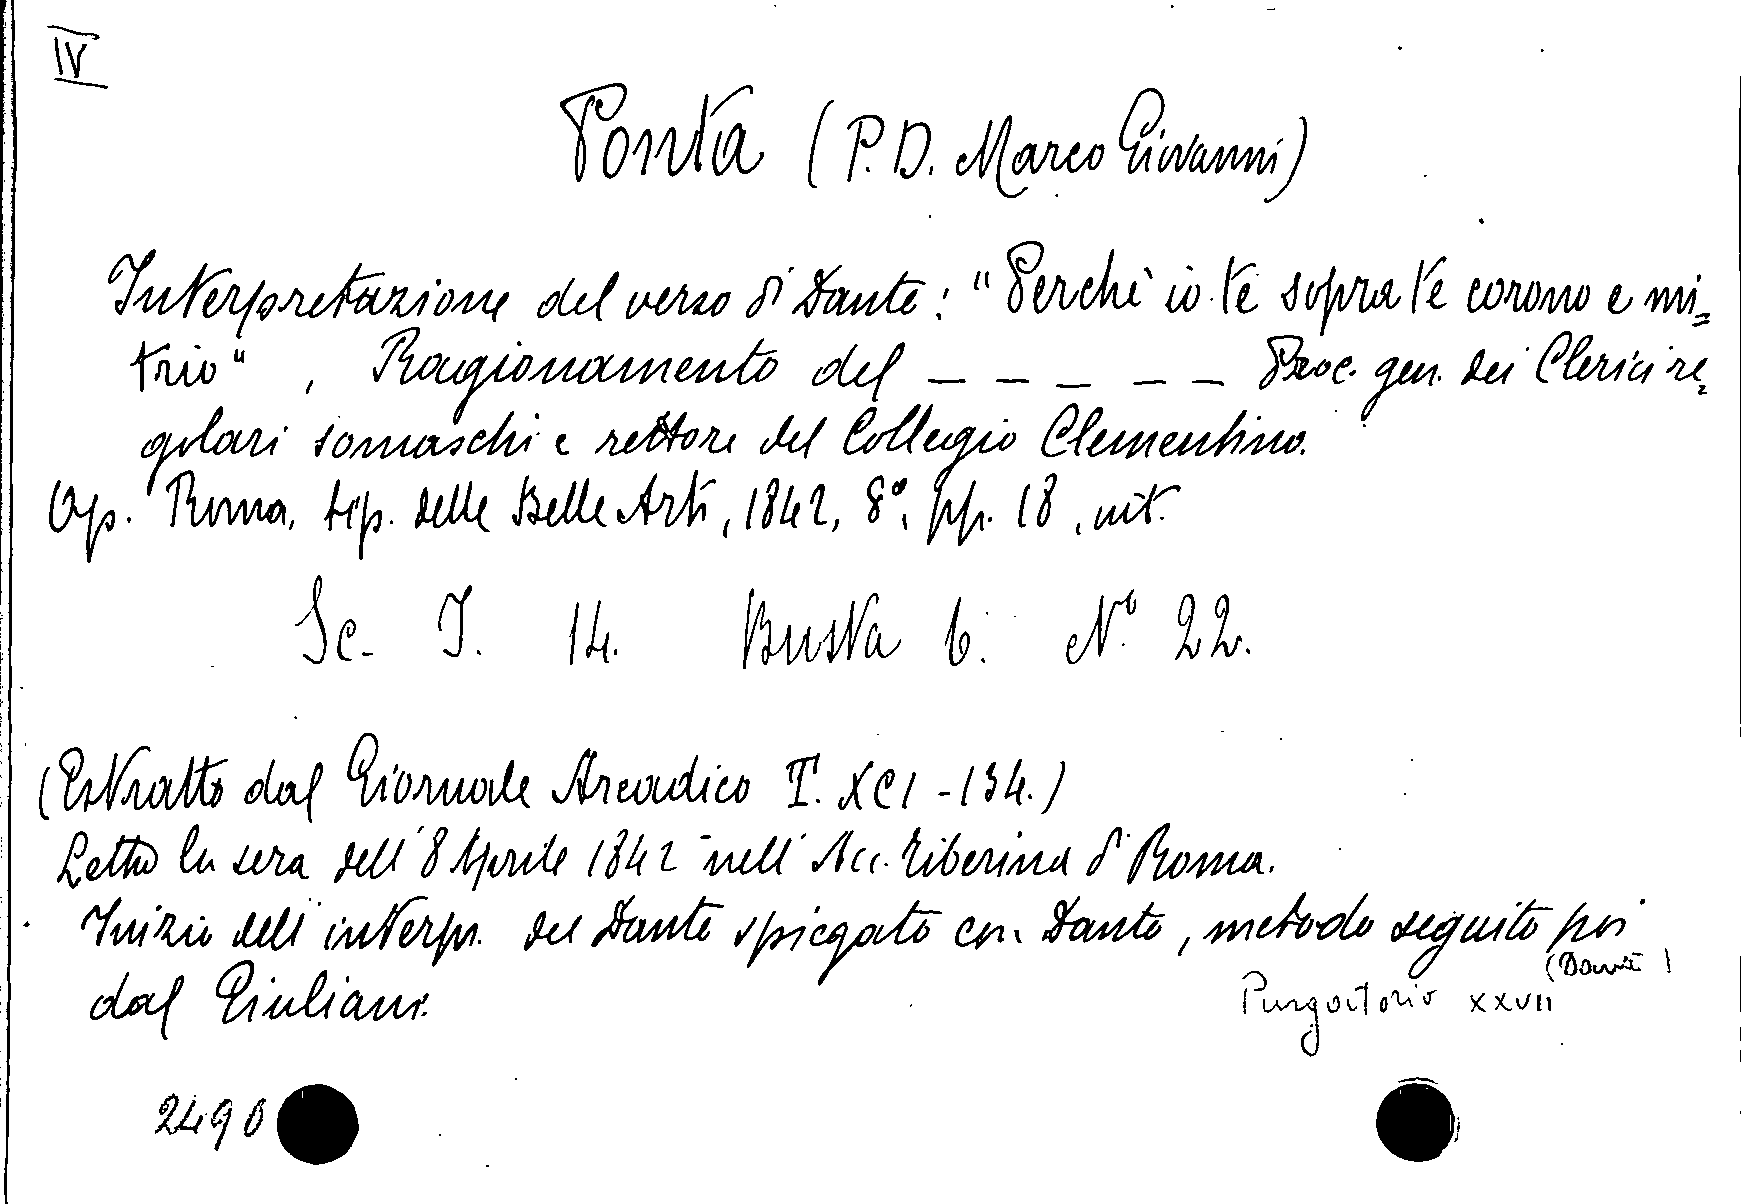 IV
Ponta (P. D. Marco Giovanni)
Interpretazione del verso di Dante: "Perchè io te sopra te corono e mi=
trio", Ragionamento del _ _ _ _ _ Proc. gen. dei Clerici re=
golari somaschi e rettore del Collegio Clementino.
Op. Roma, tip. delle Belle Arti, 1842, 8°, pp. 18, int.
Sc. I. 14. Busta 6. N° 22.
(Estratto dal Giornale Arcadico T. XCI - 134.)
Letto la sera dell' 8 Aprile 1842 nell' Acc. Tiberina di Roma.
Inizio dell' interpr. del Dante spiegato con Dante, metodo seguito poi
dal Giuliani.
(Dante)
Purgatorio XXVII
2490